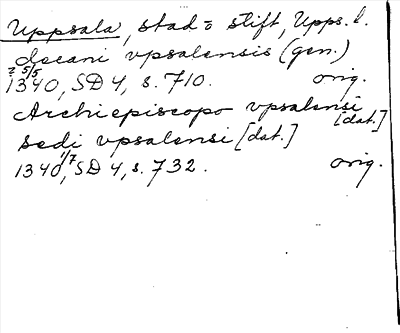 Uppsala, stad o stift, Upps. l.
decani vpsalensis (gen.)
1340 ? 5/5, SD 4, s. 710. orig.
Archiepiscopo vpsalensi [dat.]
sedi vpsalensi [dat.]
1340 1/7, SD 4, s. 732. orig.